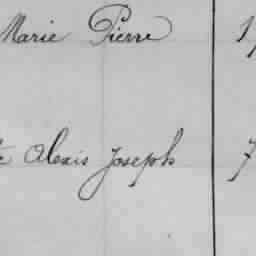 Marie Pierre
Alexis Joseph 7